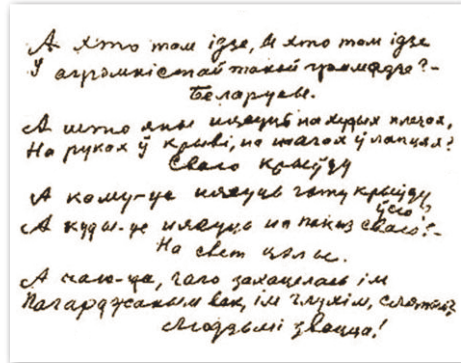 А хто там ідзе, а хто там ідзе
У агромністай такой грамадзе?-
Беларусы.
А што яны нясуць на худых плечах,
На руках ў крыві, на нагах ў лапцях?
Сваю крыўду
А каму-це нясуць гэту крыўду
ўсю?
А куды-це нясуць на паказ сваю?-
На свет цэлы.
А чаго-ца, чаго захацелась ім
Пагарджаным век, ім глухім, сляпым?
Людзьмі звацца!